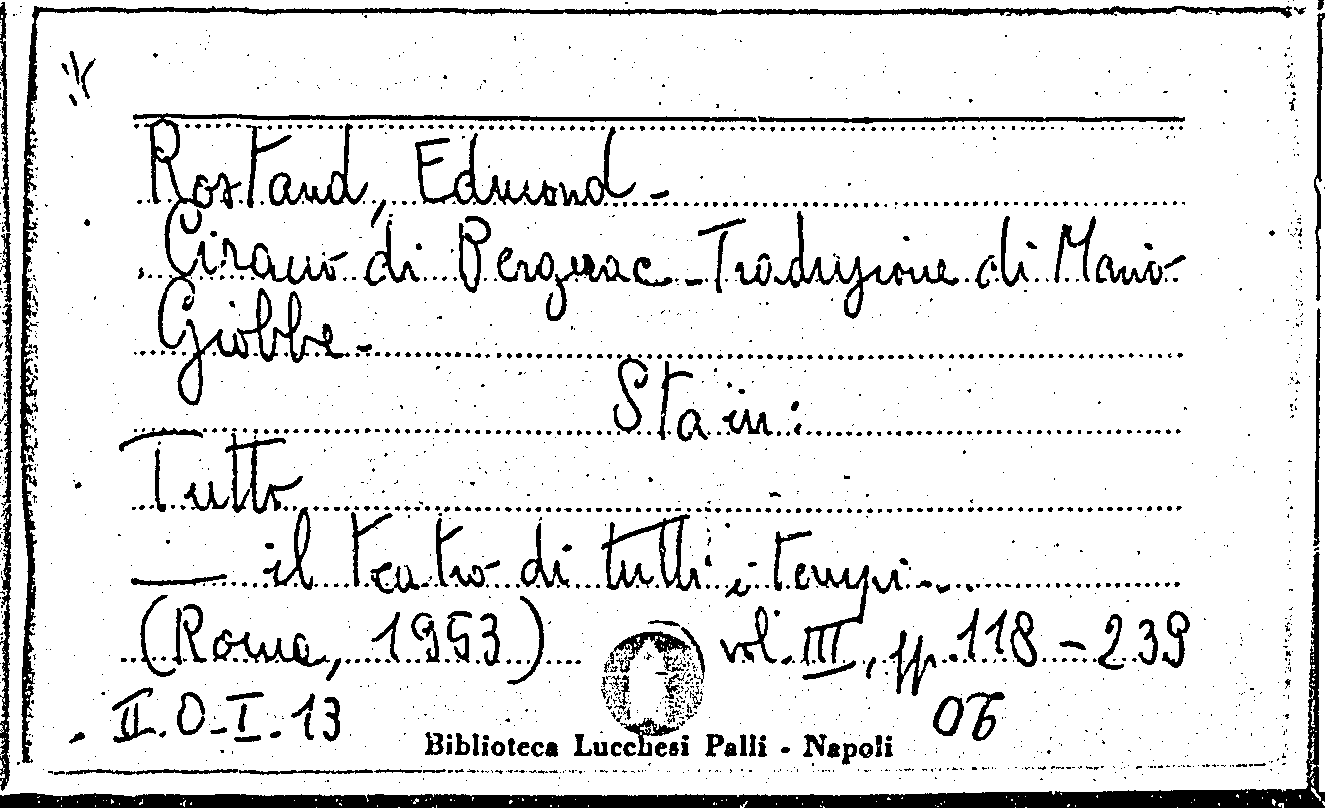 Rostand, Edmond -
Cirano di Bergerac - Traduzione di Mario
Giobbe -
Sta in:
Tutto
— il teatro di tutti i tempi -
(Roma, 1953) vol. III, pp. 118 - 239
II. O - I - 13
06
Biblioteca Lucchesi Palli - Napoli